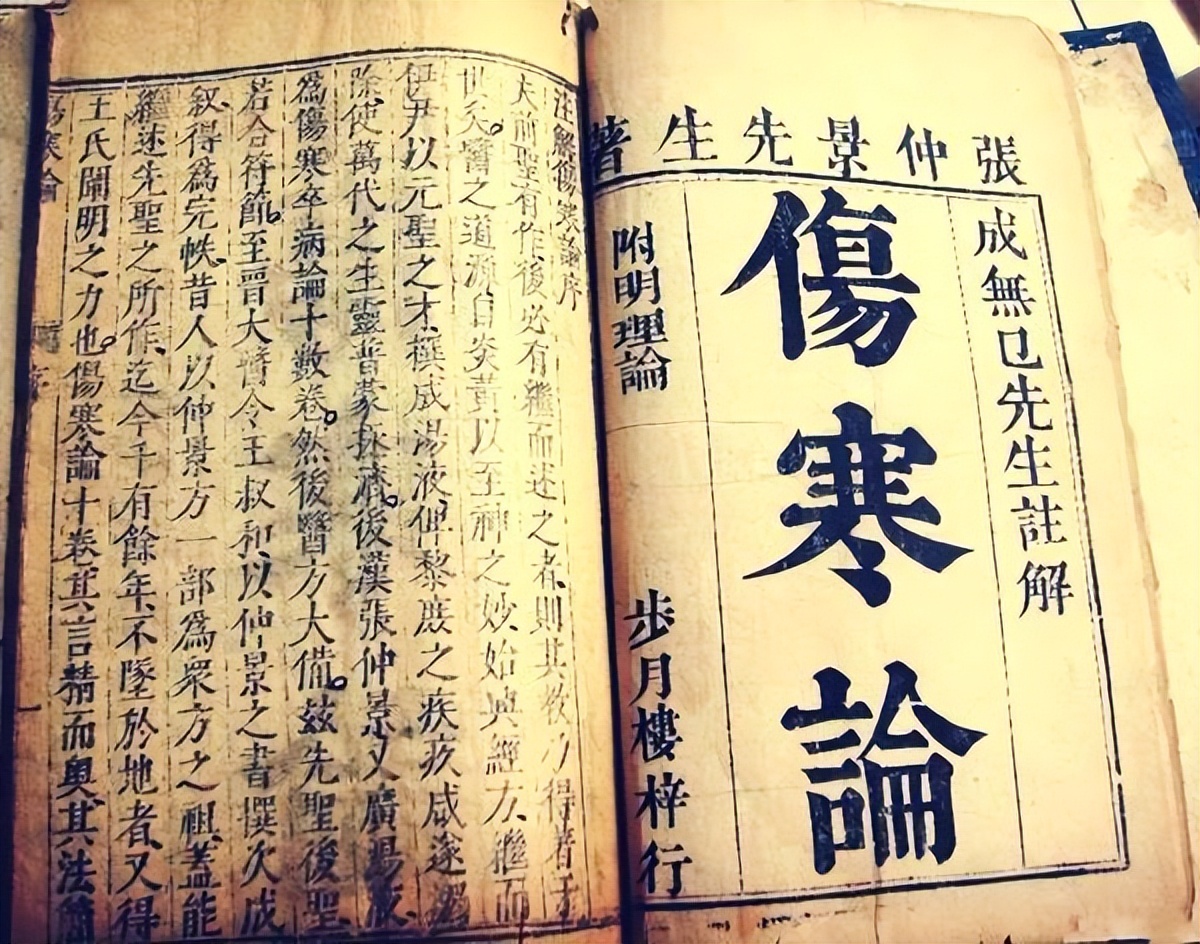 張仲景先生著
成無已先生註解
傷寒論
附明理論
步月樓梓行
注解傷寒論序
夫前聖有作後必有繼而述之者則其教乃得著于
世矣醫之道源自炎黃以至神之妙始興經方繼而
伊尹以元聖之才撰成湯液俾黎庶之疾疢咸遂蠲
除使萬代之生靈普蒙拯濟後漢張仲景又廣湯液
為傷寒卒病論十數卷然後醫方大備茲先聖後聖
若合符節至晉大醫令王叔和以仲景之書撰次成
叙得為完帙昔人以仲景方一部為衆方之祖蓋能
繼述先聖之所作迄今千有餘年不墜於地者又得
王氏闡明之力也傷寒論十卷其言精而奧其法簡
傷寒論
序